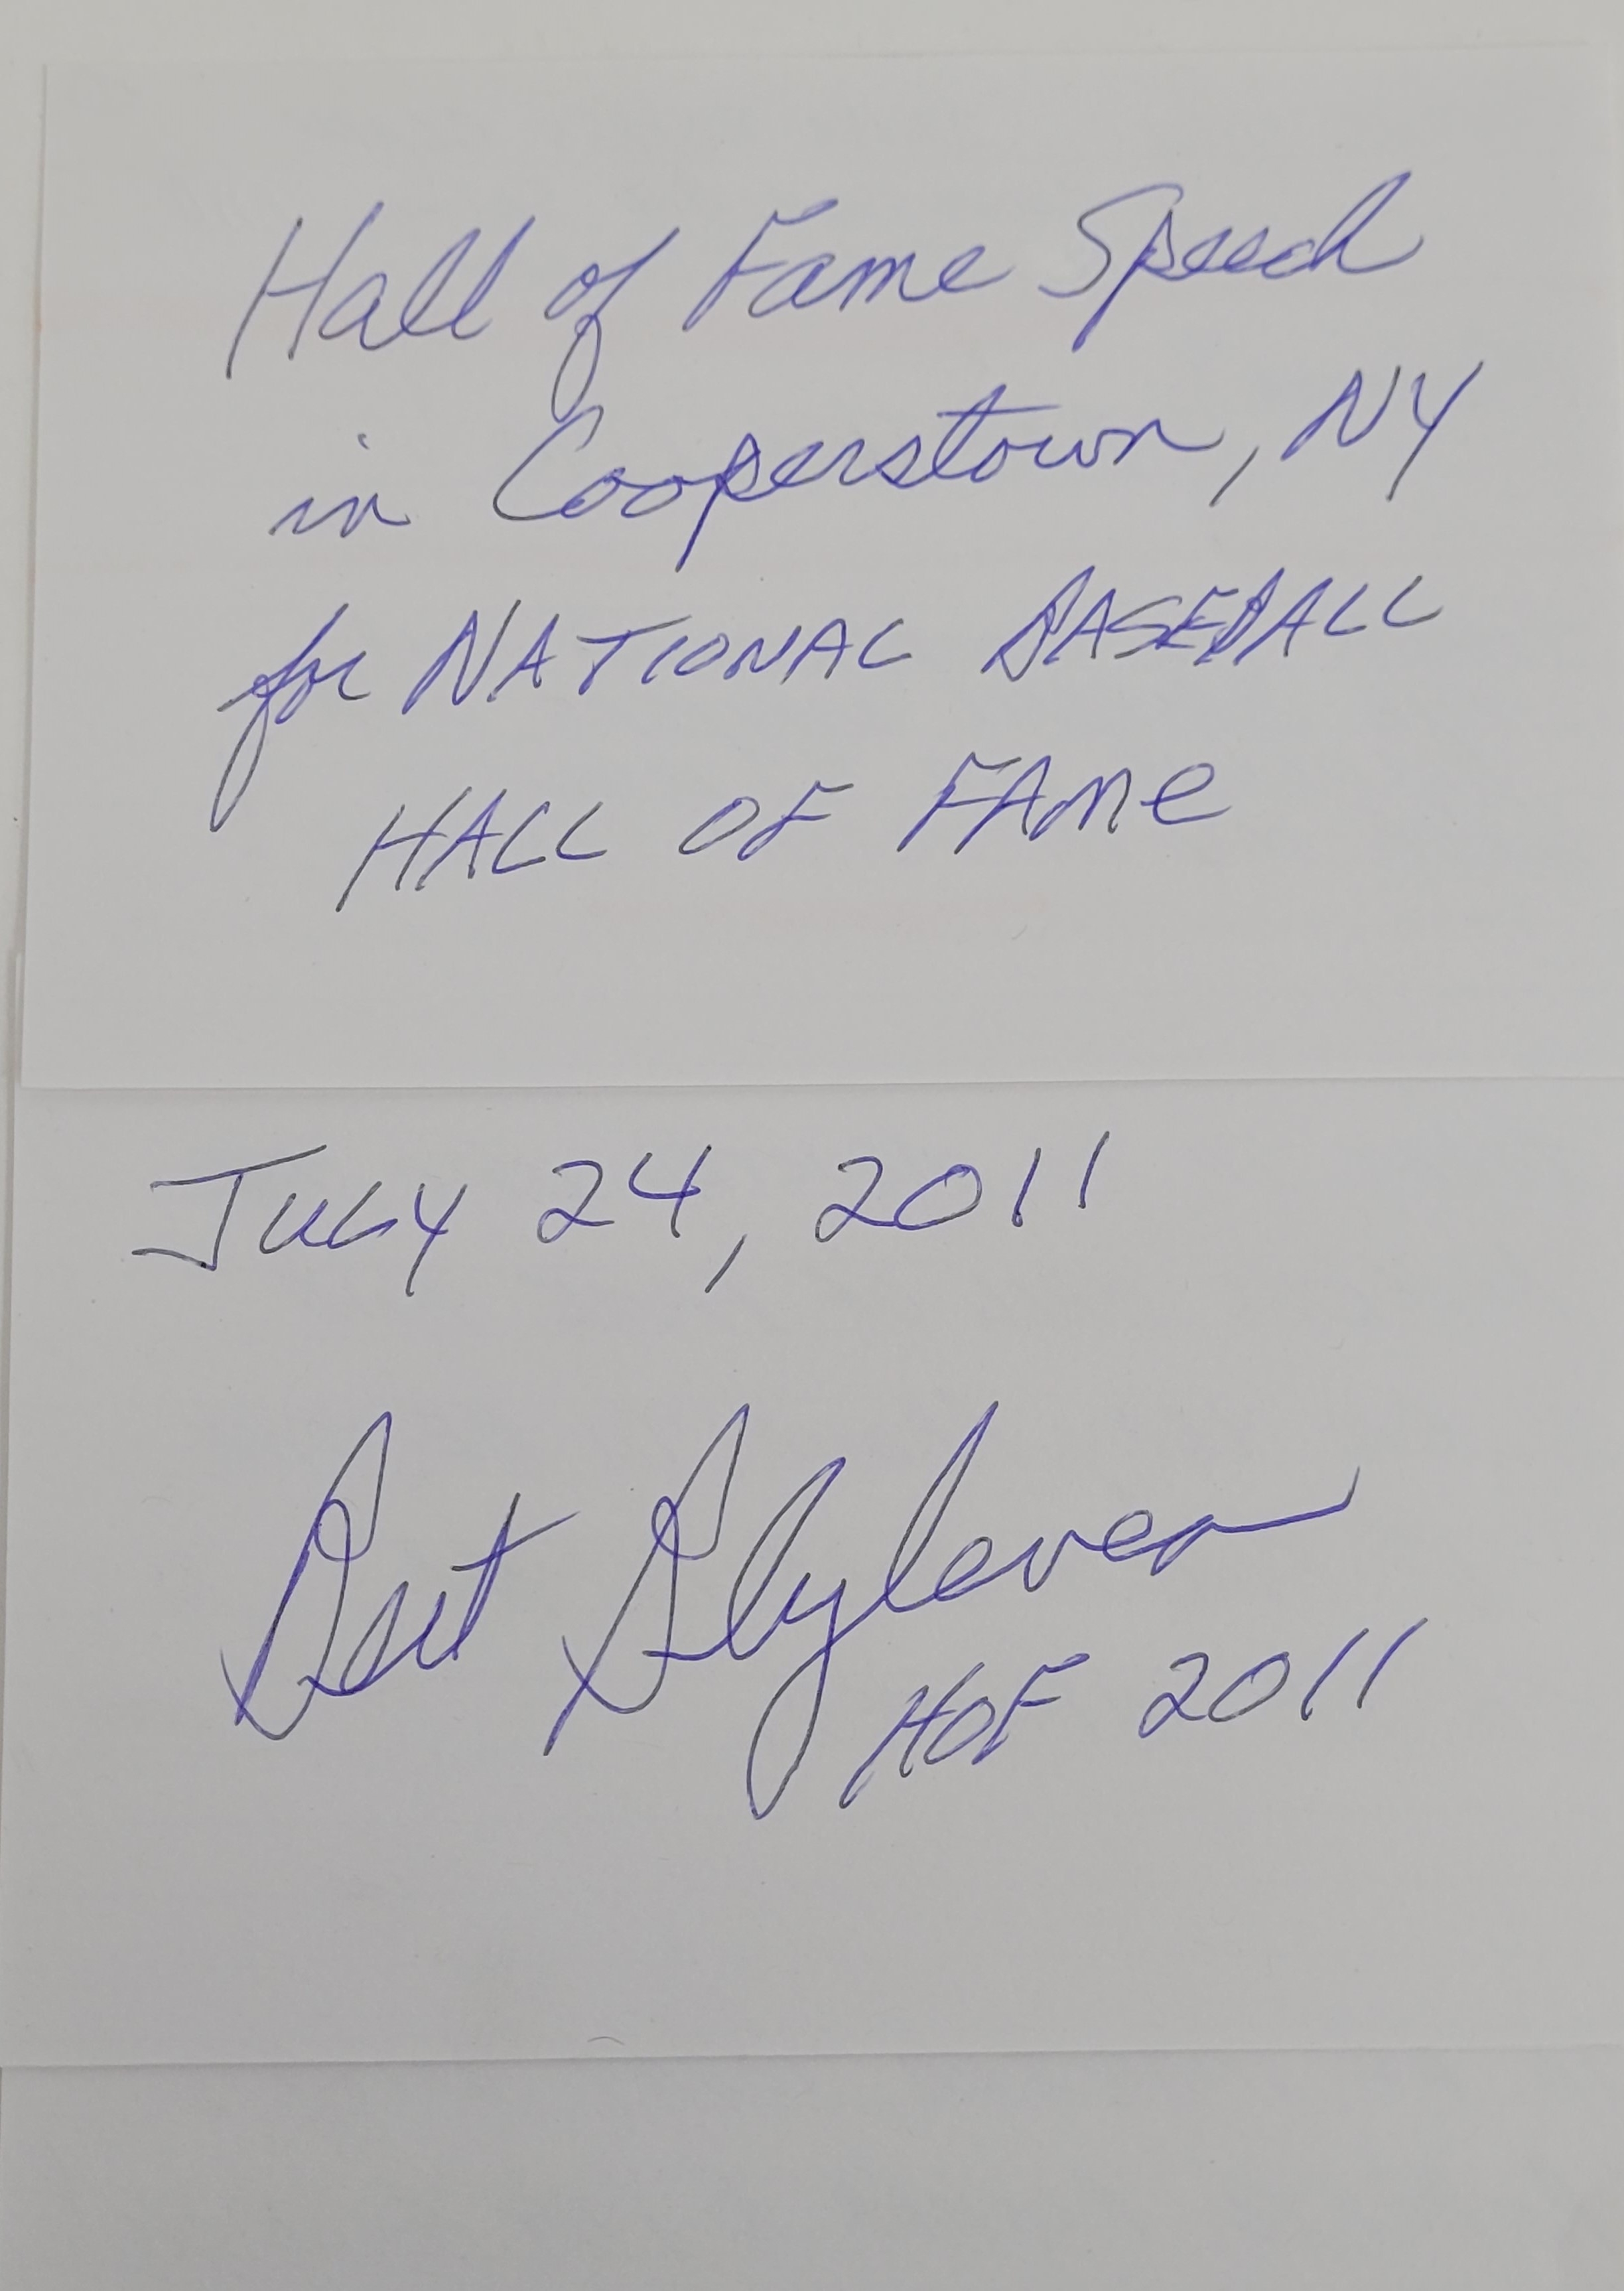 Hall of Fame Speech
in Cooperstown, NY
for NATIONAL BASEBALL
HALL OF FAME
JULY 24, 2011
Bert Blyleven
HOF 2011